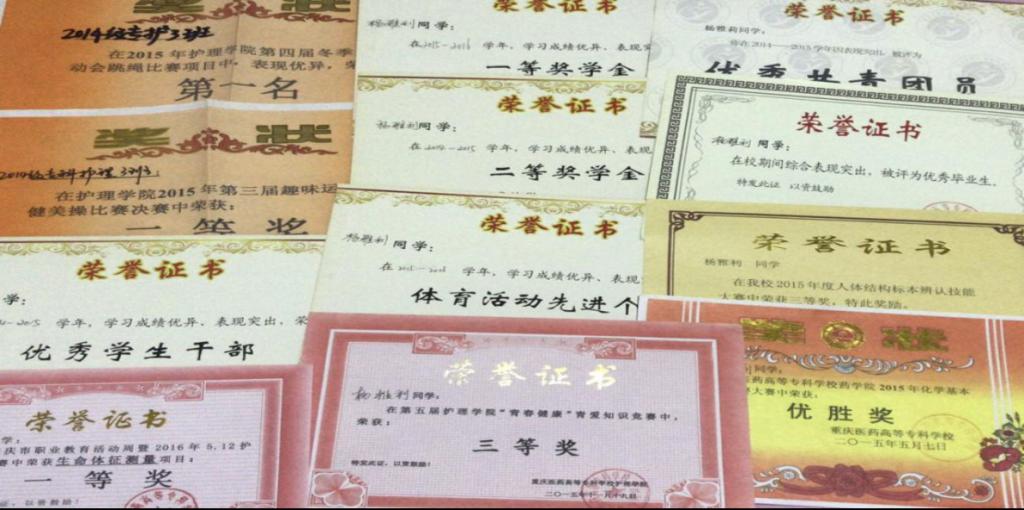 2014级专护3班
在2015年护理学院第四届冬季
动会跳绳比赛项目中,表现优异,荣
第一名
荣誉证书
杨雅利同学:
在2015-2016 学年,学习成绩优异、表现突
一等奖学金
荣誉证书
杨雅莉同学:
你在2014—2015学年因表现突出 被评为
优秀共青团员
奖 状
2014级专科护理3班:
在护理学院2015年第三届趣味运
健美操比赛决赛中荣获:
一等奖
荣誉证书
杨雅利同学:
在2014-2015 学年,学习成绩优异、表现
二等奖学金
荣誉证书
杨雅利 同学:
在校期间综合表现突出,被评为优秀毕业生。
特发此证 以资鼓励
荣誉证书
学:
学年,学习成绩优异、表现突出,荣
优秀学生干部
荣誉证书
杨雅利同学:
学年,学习成绩优异、表现
体育活动先进个
荣誉证书
杨雅利 同学
在我校2015年度人体结构标本辨认技能
大赛中荣获三等奖,特此奖励。
荣誉证书
学:
庆市职业教育活动周暨2016年5.12护
赛中荣获生命体征测量项目:
一等奖
以资鼓励!
荣誉证书
杨雅利同学:
在第五届护理学院“青春健康”青爱知识竞赛中,
荣获:
三等奖
特发此证,以资鼓励!
重庆医药高等专科学校护理学院
二〇一五年十一月十九日
奖 状
同学:
医药高等专科学校药学院2015年化学基本
大赛中荣获:
优胜奖
重庆医药高等专科学校
二〇一五年五月七日